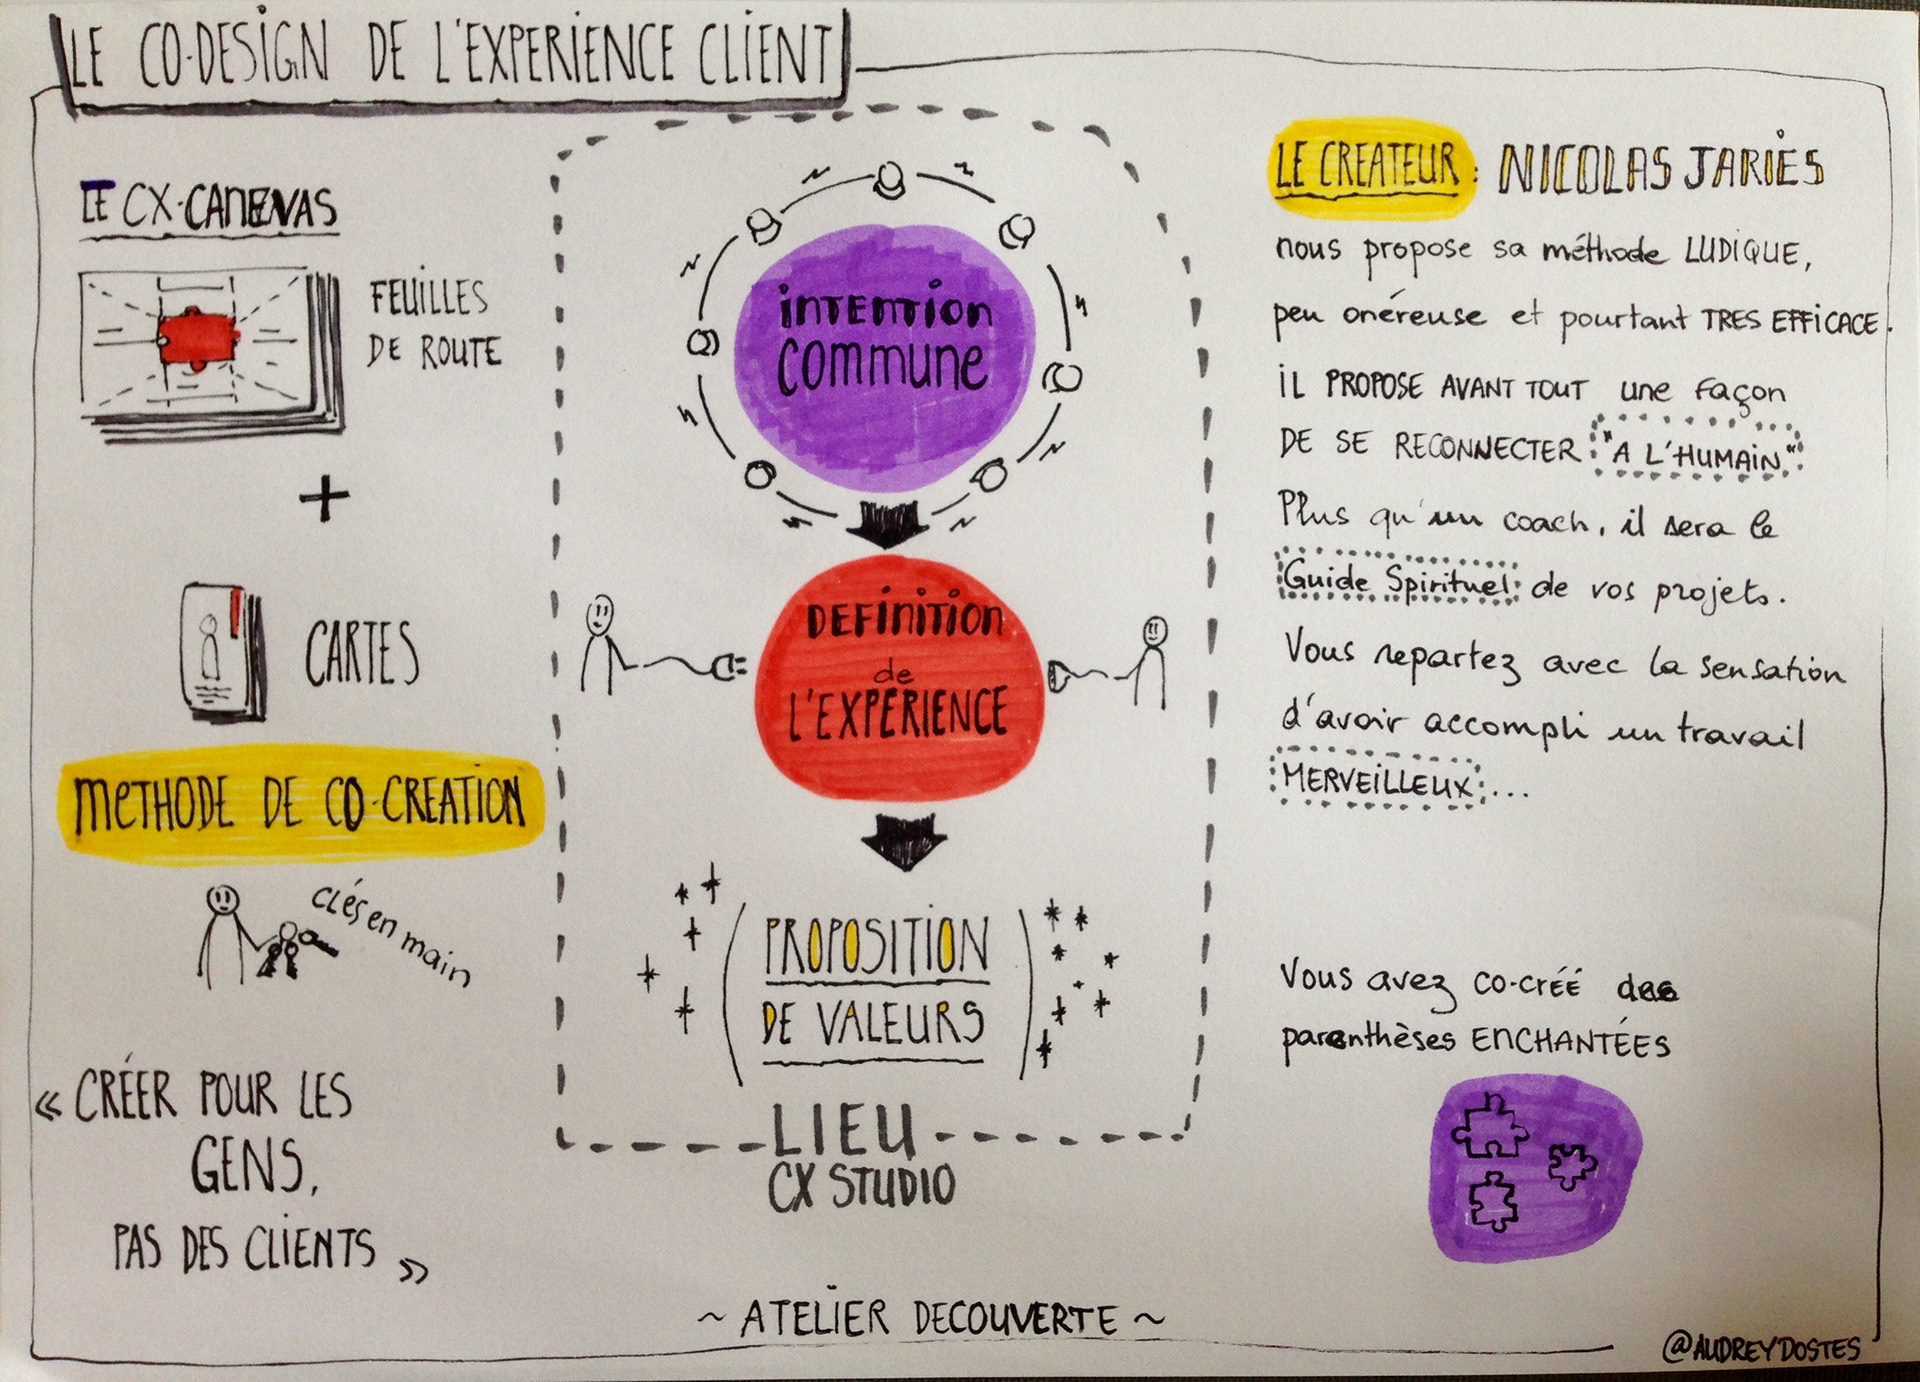 LE CO-DESIGN DE L'EXPERIENCE CLIENT
LE CX-CANEVAS
FEUILLES
DE ROUTE
+
CARTES
METHODE DE CO-CREATION
CLÉS en main
« CRÉER POUR LES
GENS,
PAS DES CLIENTS »
INTENTION
COMMUNE
DEFINITION
de
L'EXPERIENCE
PROPOSITION
DE VALEURS
LIEU
CX STUDIO
LE CREATEUR : NICOLAS JARIES
nous propose sa méthode LUDIQUE,
peu onéreuse et pourtant TRES EFFICACE.
IL PROPOSE AVANT TOUT une façon
DE SE RECONNECTER "A L'HUMAIN"
Plus qu'un coach, il sera le
Guide Spirituel de vos projets.
Vous repartez avec la sensation
d'avoir accompli un travail
MERVEILLEUX ...
Vous avez co-créé des
parenthèses ENCHANTÉES
~ ATELIER DECOUVERTE ~
@AUDREYDOSTES